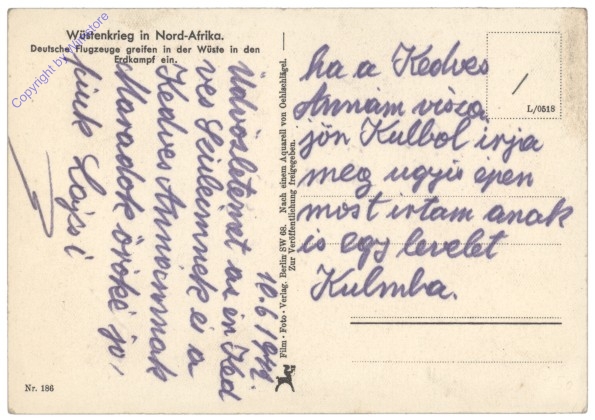 Wüstenkrieg in Nord-Afrika.
Deutsche Flugzeuge greifen in der Wüste in den
Erdkampf ein.
Copyright by Winstore
10.6.1942.
Üdvözletemet az én Ked
ves Szüleimnek és a
Kedves Annámnak
Maradok örökké jo,
fiuk Lajsi
Film-Foto-Verlag, Berlin SW 68. Nach einem Aquarell von Oehlschlägel.
Zur Veröffentlichung freigegeben.
L/0518
ha a Kedves
Annám visza
jön Kulbol irja
meg ugyis épen
most irtam anak
is egy levelet
Kulmba.
Nr. 186